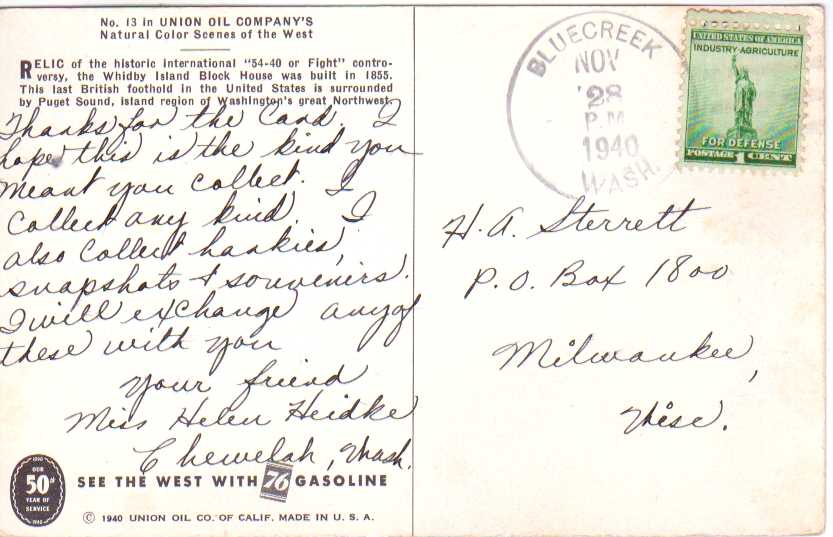 No. 13 in UNION OIL COMPANY'S
Natural Color Scenes of the West
RELIC of the historic international "54-40 or Fight" contro-
versy, the Whidby Island Block House was built in 1855.
This last British foothold in the United States is surrounded
by Puget Sound, island region of Washington's great Northwest.
Thanks for the Card. I
hope this is the kind you
meant you collect. I
collect any kind. I
also collect hankies,
snapshots & souvenirs.
I will exchange any of
these with you
Your friend
Miss Helen Heidke
Chewelah, Wash.
1890
OUR
50th
YEAR OF
SERVICE
1940
SEE THE WEST WITH 76 GASOLINE
© 1940 UNION OIL CO. OF CALIF. MADE IN U. S. A.
BLUECREEK
NOV
28
P.M
1940
WASH.
UNITED STATES OF AMERICA
INDUSTRY-AGRICULTURE
FOR DEFENSE
POSTAGE 1 CENT
H. A. Sterrett
P. O. Box 1800
Milwaukee,
Wisc.